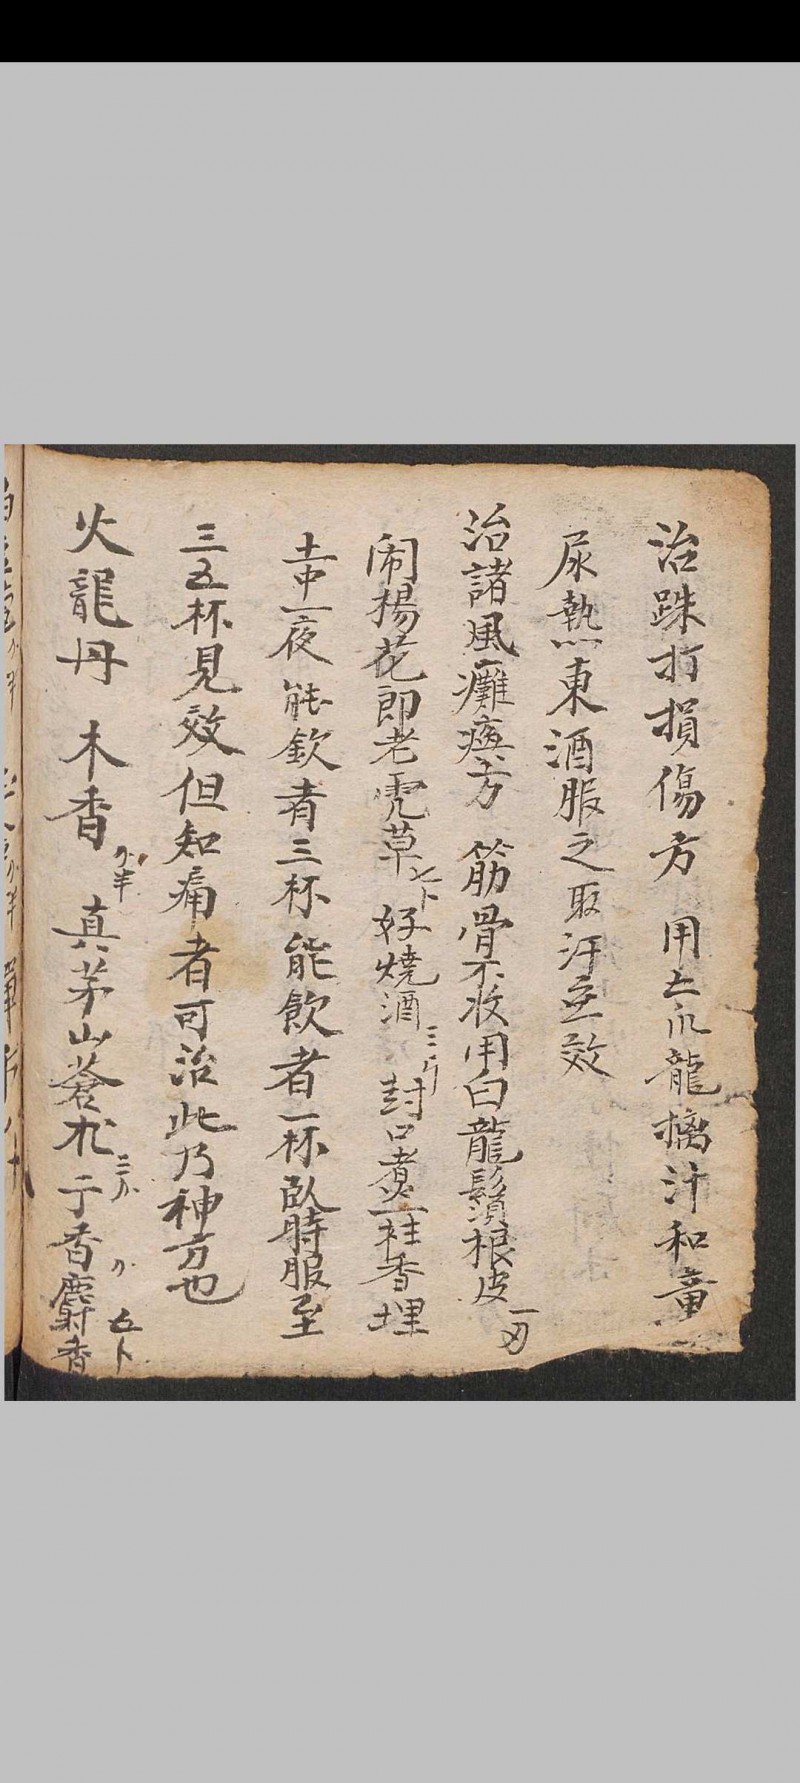 治跌打損傷方 用五爪龍擂汁和童
尿熱東酒服之取汗立效
治諸風癱瘓方 筋骨不收用白龍鬚根皮一刃
闹楊花即老虎草七卜好燒酒三斤封口煮一炷香埋
土中一夜能飲者三杯能飲者一杯臥時服至
三五杯見效但知痛者可治此乃神方也
火龍丹 木香 真茅山蒼朮 子香 麝香五卜